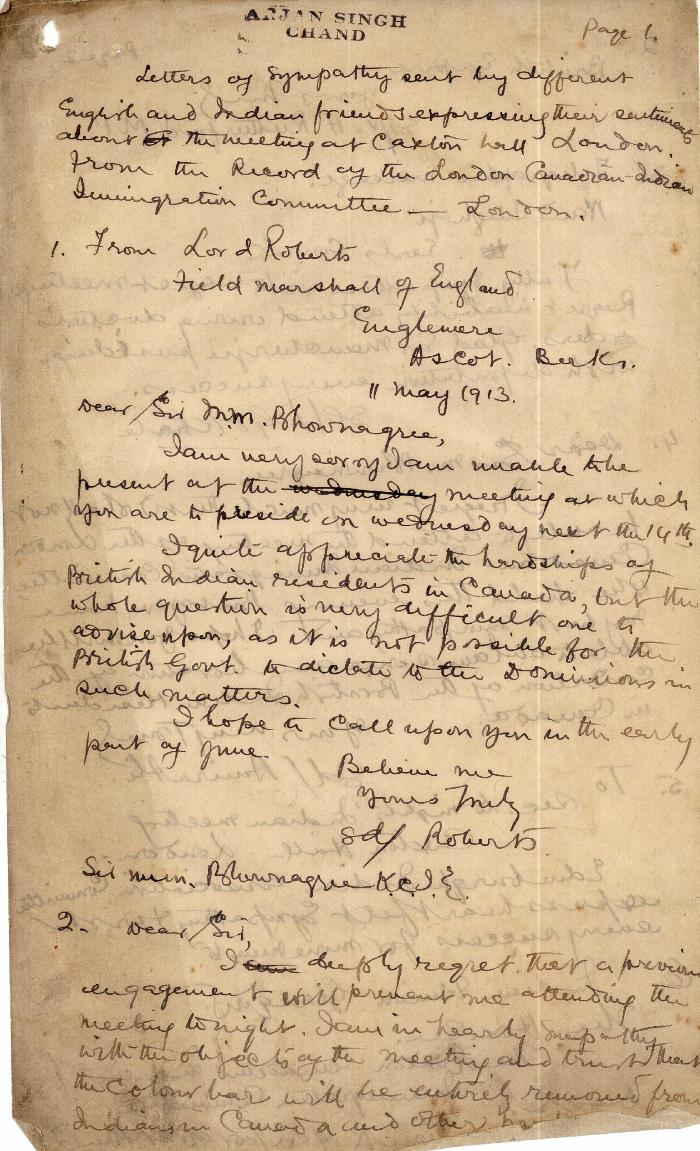 ARJAN SINGH
CHAND
Page 1.
Letters of Sympathy sent by different
English and Indian friends expressing their sentiments
about the meeting at Caxton hall London.
From the Record of the London Canadian-Indian
Immigration Committee — London.
1. From Lord Roberts
Field marshall of England
Englemere
Ascot. Berks.
11 May 1913.
Dear Sir M.M. Bhownagree,
I am very sorry I am unable to be
present at the wednesday meeting at which
you are to preside on wednesday next the 14th.
I quite appreciate the hardships of
British Indian residents in Canada, but the
whole question is very difficult one to
advise upon, as it is not possible for the
British Govt. to dictate to the Dominions in
such matters.
I hope to call upon you in the early
part of June.
Believe me
Yours Truly
sd/ Roberts
Sir M.M. Bhownagree K.C.I.E.
2. Dear Sir,
I deeply regret that a previous
engagement will prevent me attending the
meeting tonight. I am in hearty sympathy
with the objects of the meeting and trust that
the colour bar will be entirely removed from
Indians in Canada and other